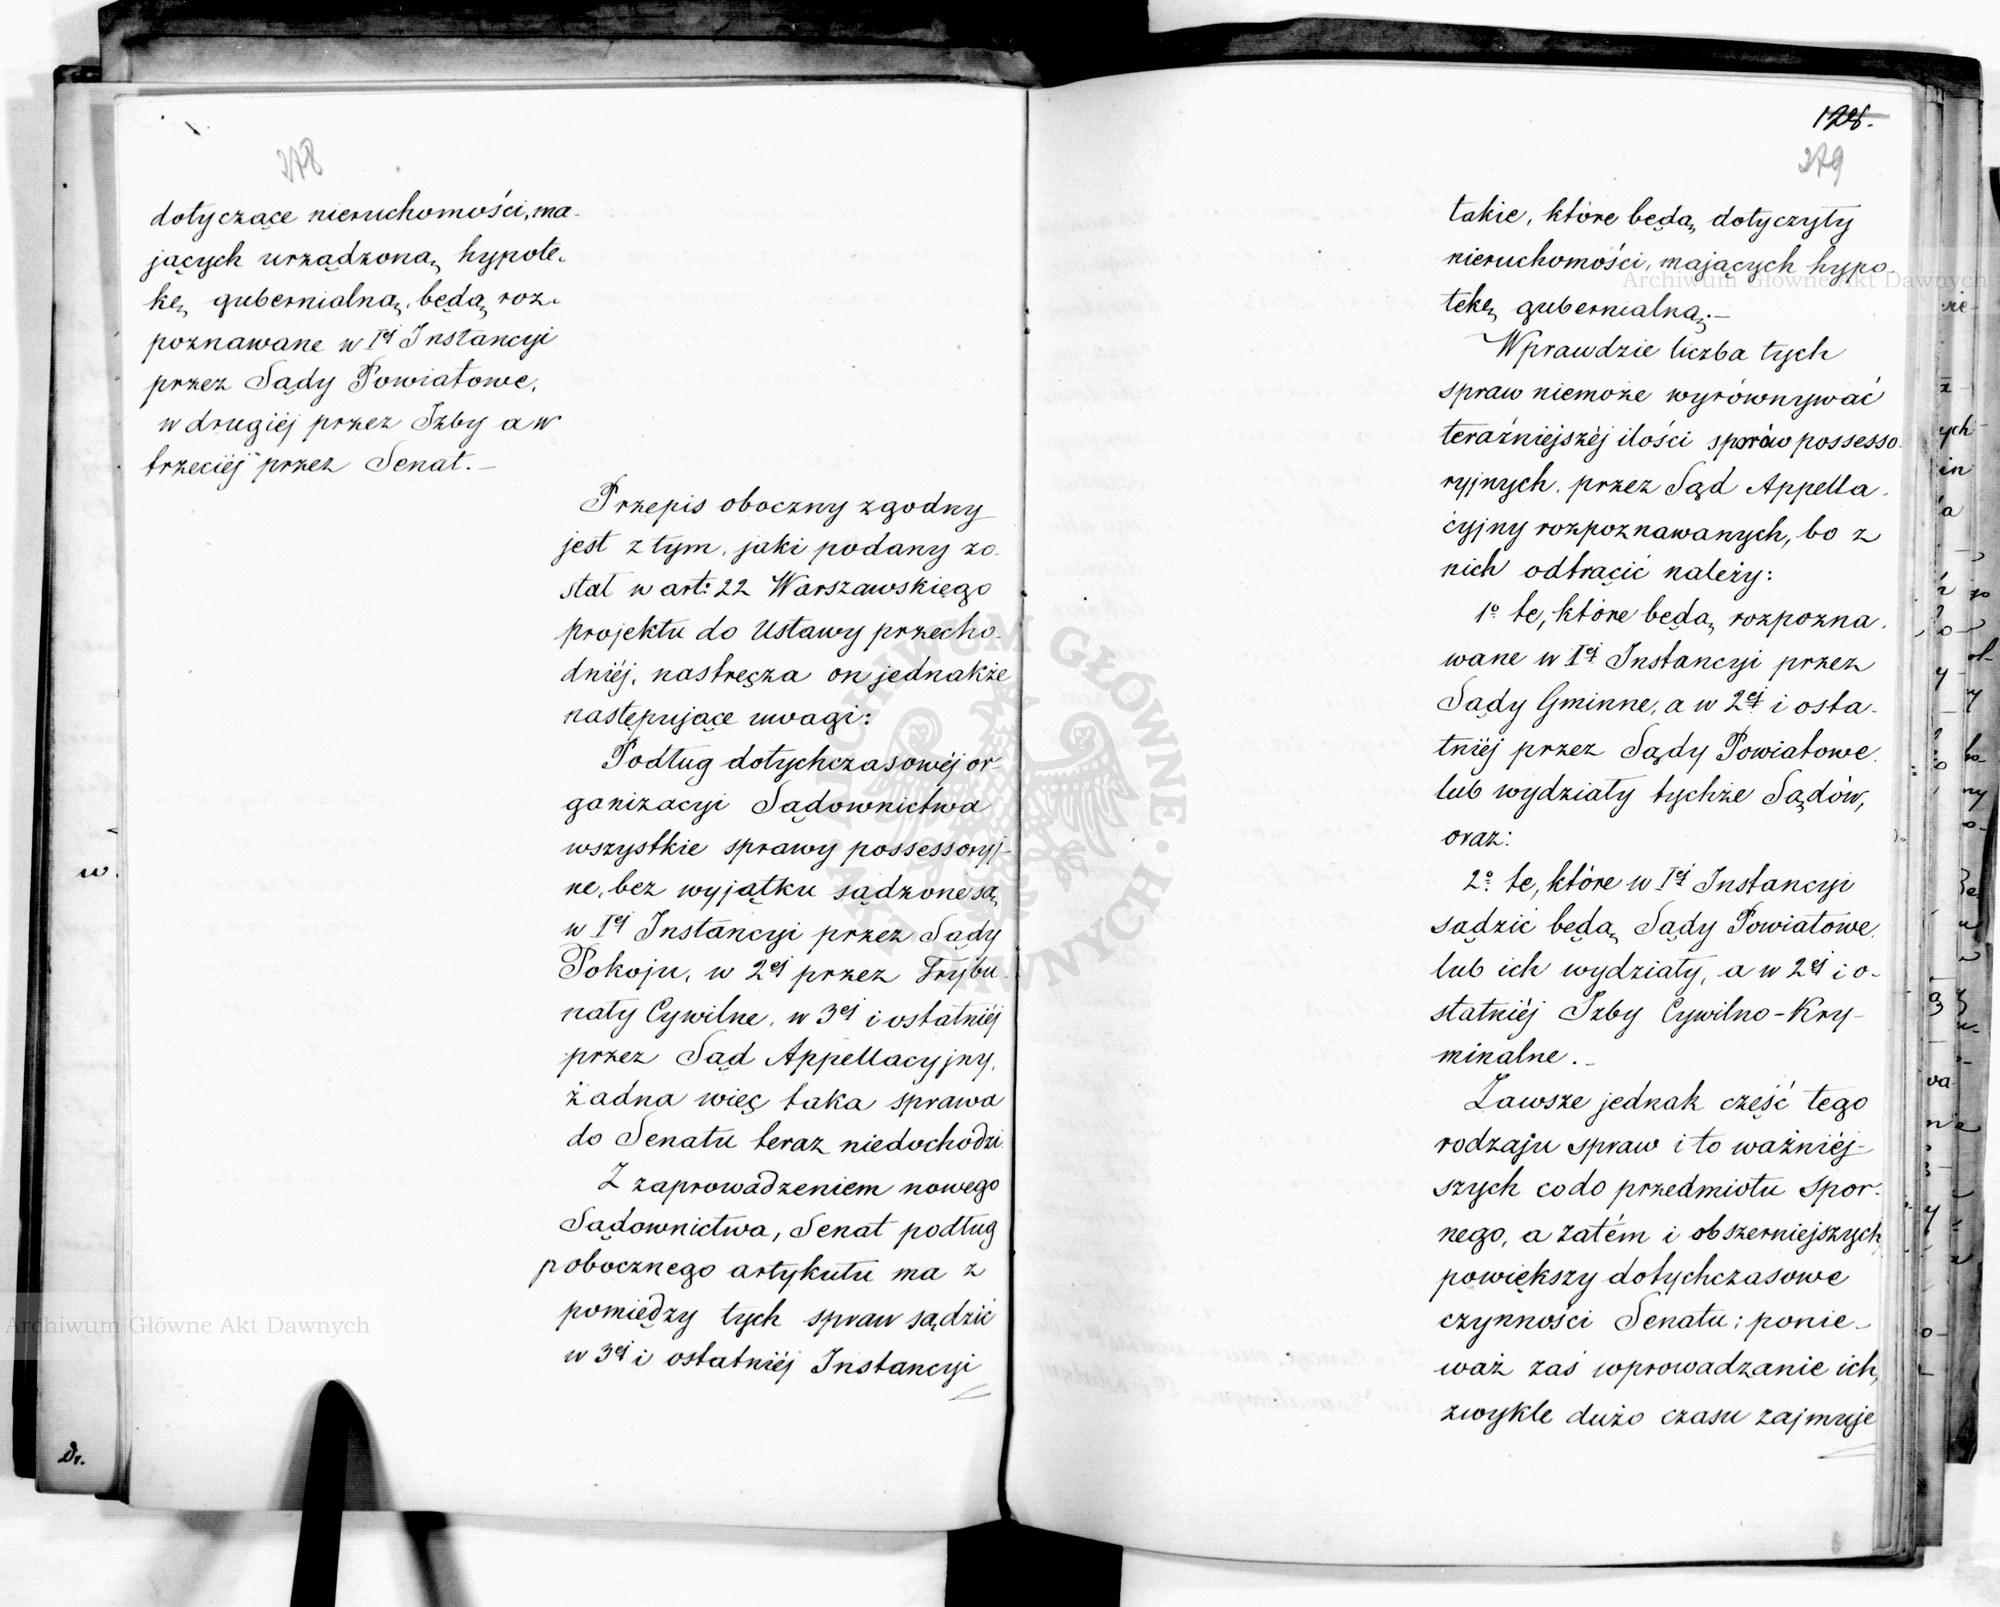 278
dotyczące nieruchomości, ma-
jących urządzoną hypote-
kę gubernialną, będą roz-
poznawane w Iej Instancyi
przez Sądy Powiatowe,
w drugiéj przez Izby a w
trzeciéj przez Senat.—
Przepis oboczny zgodny
jest z tym, jaki podany zo-
stał w art: 22 Warszawskiego
projektu do Ustawy przecho-
dniéj, nastręcza on jednakże
następujące uwagi:
Podług dotychczasowéj or-
ganizacyi Sądownictwa
wszystkie sprawy possessoryj-
ne, bez wyjątku sądzone są
w Iej Instancyi przez Sądy
Pokoju, w 2ej przez Trybu-
nały Cywilne, w 3ej i ostatniéj
przez Sąd Appellacyjny,
żadna więc taka sprawa
do Senatu teraz niedochodzi
Z zaprowadzeniem nowego
Sądownictwa, Senat podług
pobocznego artykułu ma z
pomiędzy tych spraw sądzić
w 3ej i ostatniéj Instancyi
279
takie, które będą dotyczyły
nieruchomości, mających hypo-
tekę gubernialną.—
Wprawdzie liczba tych
spraw niemoże wyrównywać
teraźniejszéj ilości sporów possesso-
ryjnych, przez Sąd Appella-
cyjny rozpoznawanych, bo z
nich odtrącić należy:
1o te, które będą rozpozna-
wane w Iej Instancyi przez
Sądy Gminne, a w 2ej i osta-
tniéj przez Sądy Powiatowe
lub wydziały tychże Sądów,
oraz:
2o te, które w Iej Instancyi
sądzić będą Sądy Powiatowe
lub ich wydziały, a w 2ej i o-
statniéj Izby Cywilno-Kry-
minalne.—
Zawsze jednak część tego
rodzaju spraw i to ważniéj-
szych codo przedmiotu spor-
nego, a zatém i obszerniejszych
powiększy dotychczasowe
czynności Senatu; ponie-
waż zaś wprowadzanie ich,
zwykle dużo czasu zajmuje
w.
Dr.
Archiwum Główne Akt Dawnych
Archiwum Główne Akt Dawnych
ARCHIWUM GŁÓWNE AKT DAWNYCH